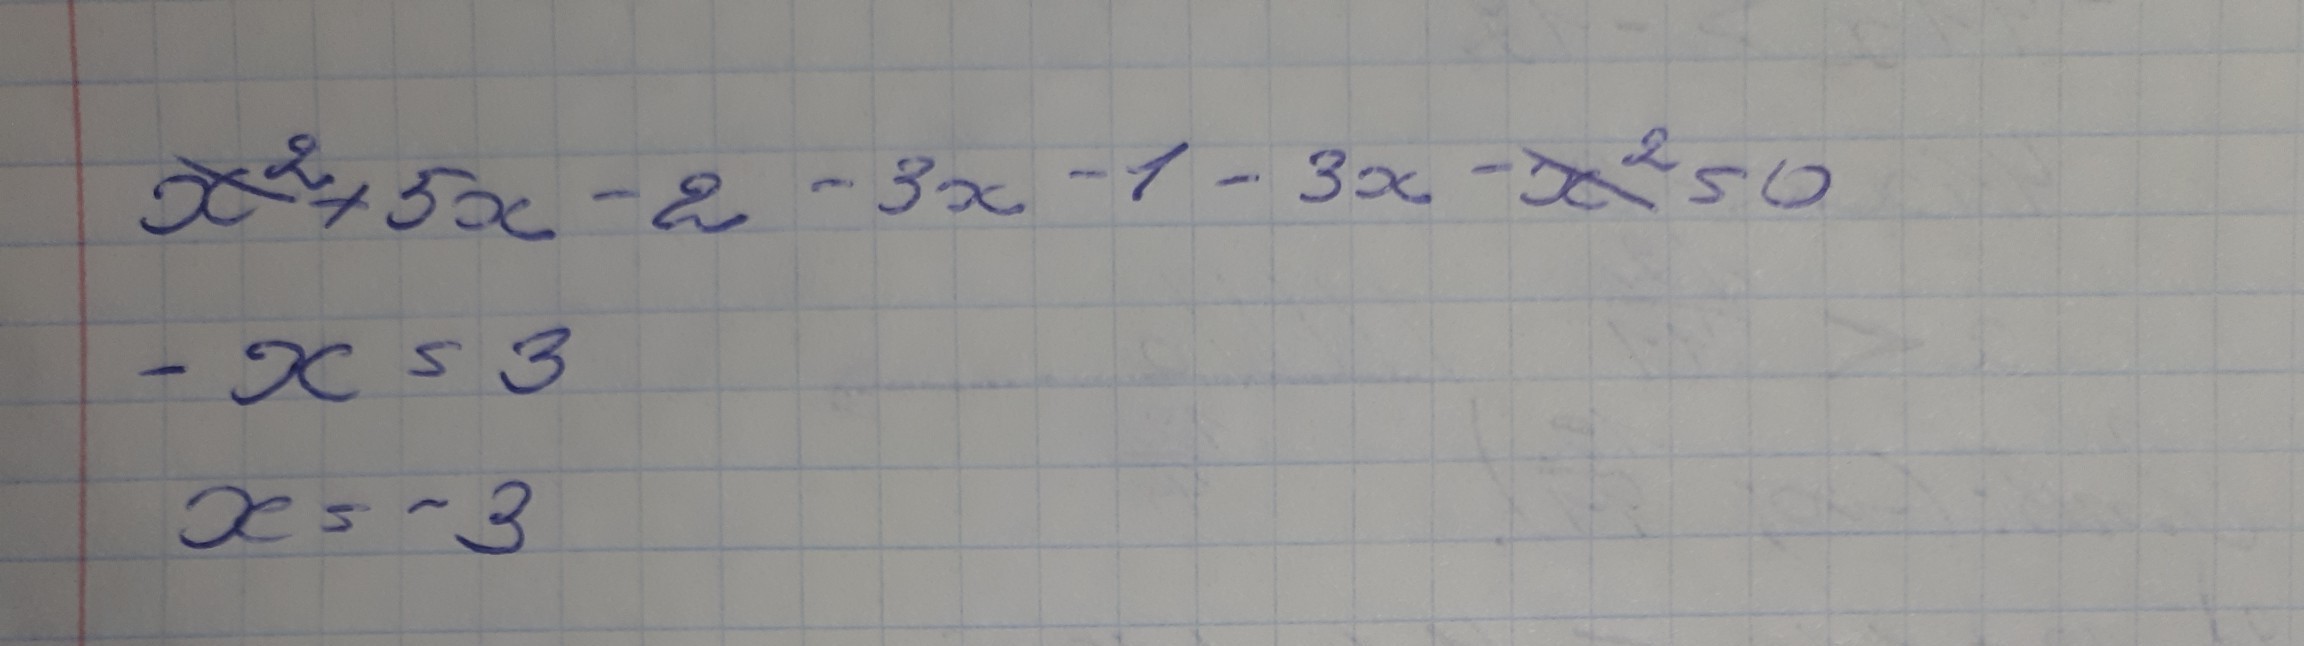 x² + 5x - 2 - 3x - 1 - 3x - x² = 0
- x = 3
x = -3